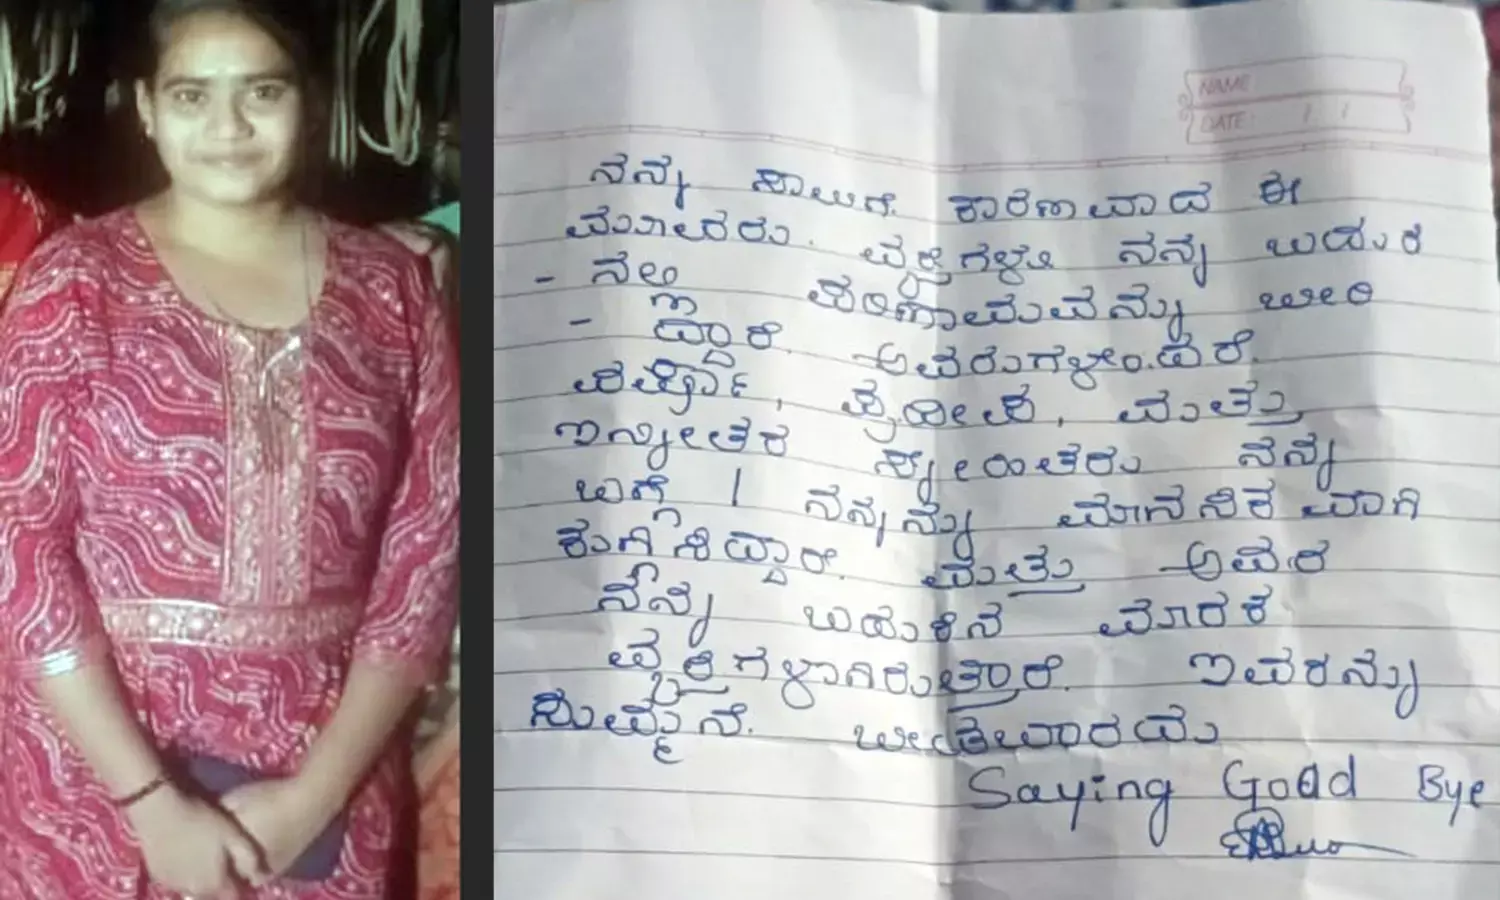 NAME
DATE: / /
ನನ್ನ ಸಾವಿಗೆ ಕಾರಣವಾದ ಈ
ಮೂವರು. ವ್ಯಕ್ತಿಗಳು ನನ್ನ ಬದುಕಿ
- ನಲ್ಲಿ ಪರಿಣಾಮವನ್ನು ಬೀರಿ
- ದ್ದಾರೆ. ಅವರುಗಳೆಂದರೆ.
, ಪ್ರದೀಪ, ಮತ್ತು
ಇನ್ನೀತರ ಸ್ನೇಹಿತರು ನನ್ನ
ಬಗ್ಗೆ / ನನ್ನನ್ನು ಮಾನಸಿಕವಾಗಿ
ಕುಗ್ಗಿಸಿದ್ದಾರೆ. ಮತ್ತು ಅವರೆ
ನನ್ನ ಬದುಕಿನ ಮಾರಕ
ವ್ಯಕ್ತಿಗಳಾಗಿರುತ್ತಾರೆ. ಇವರನ್ನು
ಸುಮ್ಮನೆ. ಬೀಡಬಾರದು
Saying Good Bye